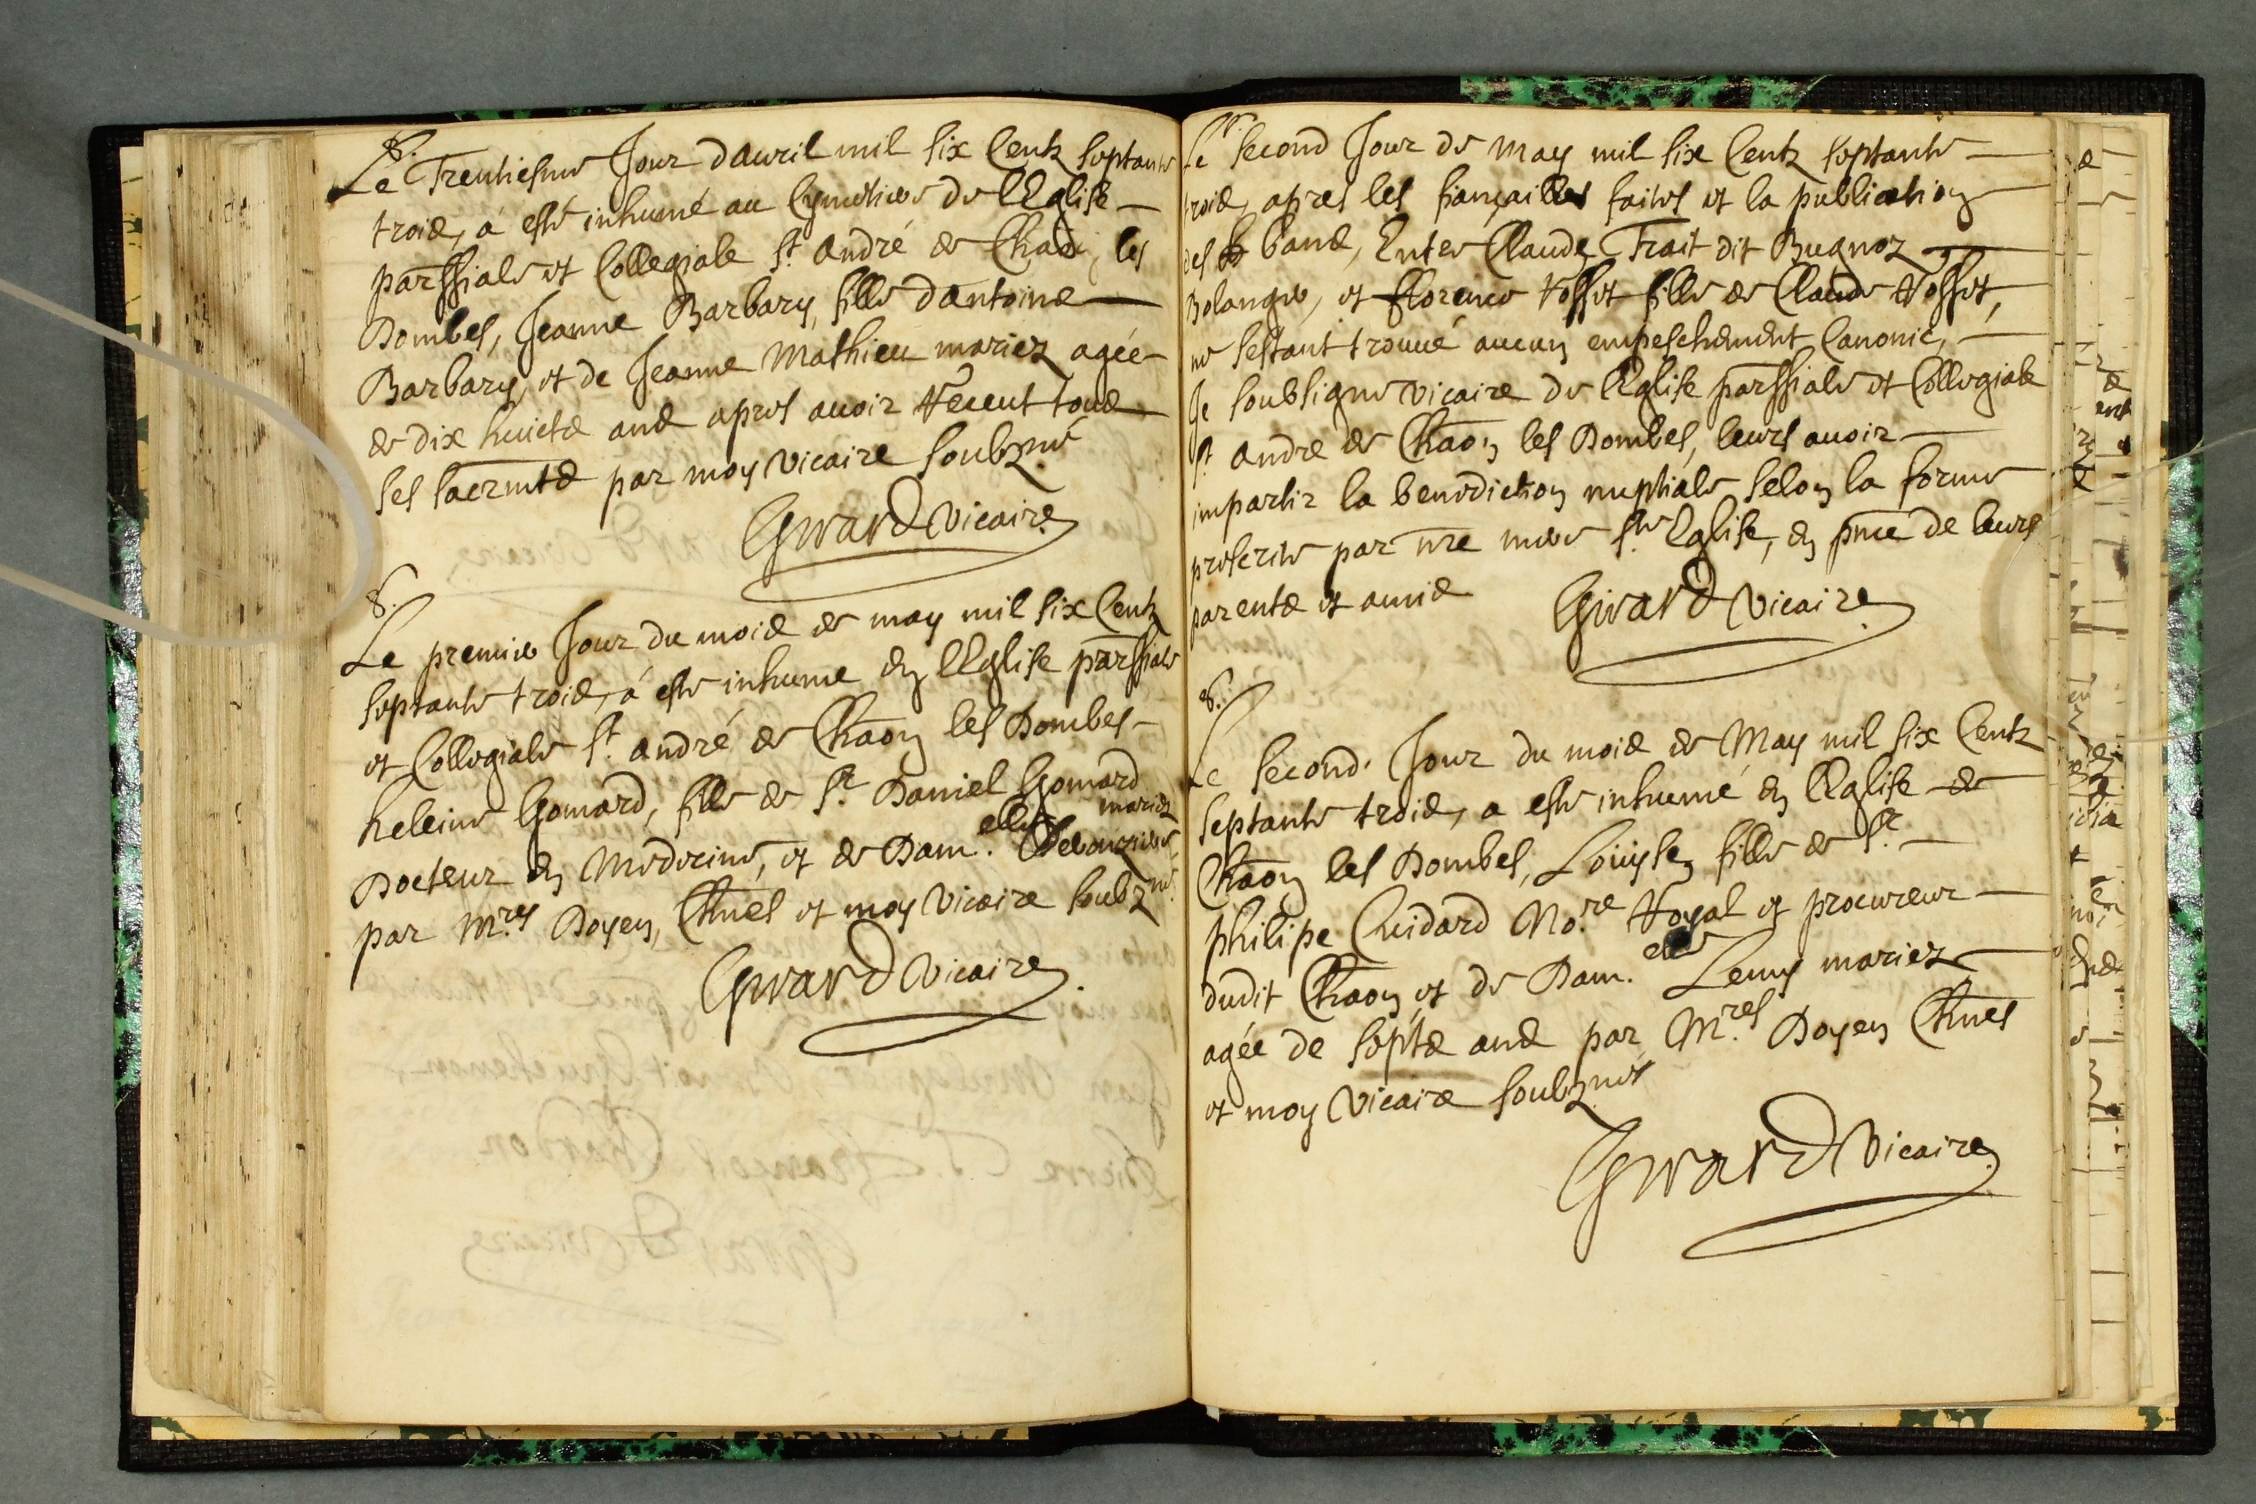 S.
Le Trentiesme Jour dauril mil six Centz septante
trois, a esté inhumé au Cymetiere de lEglise
parssiale et Collegiale St. André de Chaōn les
Dombes, Jeanne Barbary, fille dantoine
Barbary, et de Jeanne Mathieu mariez agée
de dix huicts ans apres auoir Receut tous
ses sacrmts par moy vicaire soubzné
Girard vicaire
S.
Le premier Jour du mois de may mil six Centz
septante trois, á este inhume en lEglise parssiale
et Collegiale St. andré de Chaōn les Dombes
heleine Gomard, fille de Sr. Daniel Gomard
Docteur en Medecine, et de Dam.elle mariez
par Mrs. Doyen, Chnes et moy vicaire soubzné
Girard vicaire
Le second Jour de may mil six Centz septante
trois, apres les fiançailles faites et la publication
des bans, Entre Claude Trait dit Bugnoz
Bolanger, et florence Rosset fille de Claude Rosset,
ne sestant trouué aucun empeschement Canonic,
Je soubsigne vicaire de lEglise parssiale et Collegiale
St. andre de Chaōn les Dombes, leurs auoir
impartir la benediction nuptiale selon la forme
prescrite par nre mere ste Eglise, en pnce de leurs
parents et amis
Girard vicaire
S.
Le second Jour du mois de May mil six Centz
septante trois, a este inhumé en lEglise de
Chaōn les Dombes, Loüyse fille de Sr.
philipe Cuidard No.re Royal et procureur
dudit Chaōn et de Dam.elle Lemy mariez
agée de septs ans par M.res Doyen Chnes
et moy vicaire soubznés
Girard vicaire